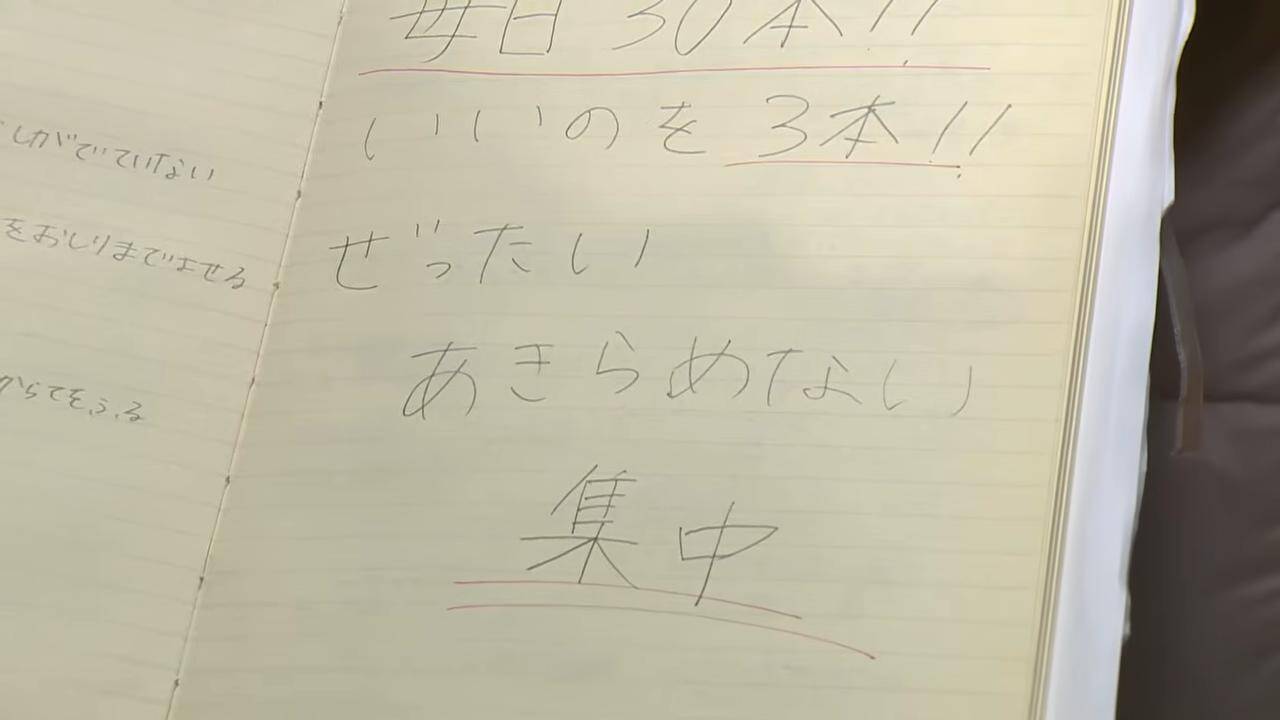 しがでていない
をおしりまでませる
からてをふる
毎日30本!!
いいのを3本!!
ぜったい
あきらめない
集中